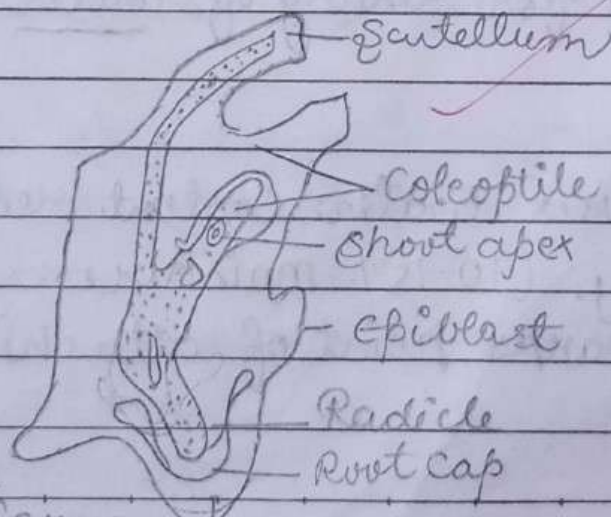 Scutellum
Coleoptile
Shoot apex
Epiblast
Radicle
Root cap